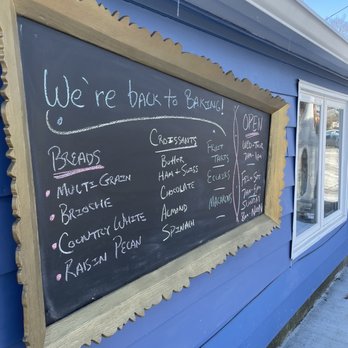 We're back to Baking!
Breads
Multi Grain
Brioche
Country White
Raisin Pecan
Croissants
Butter
Ham + Swiss
Chocolate
Almond
Spinach
Fruit
Tarts
Eclairs
Macarons
Open
Wed-Thur
7am-4pm
Fri-Sat
7am-5pm
Sunday
8am-Noon